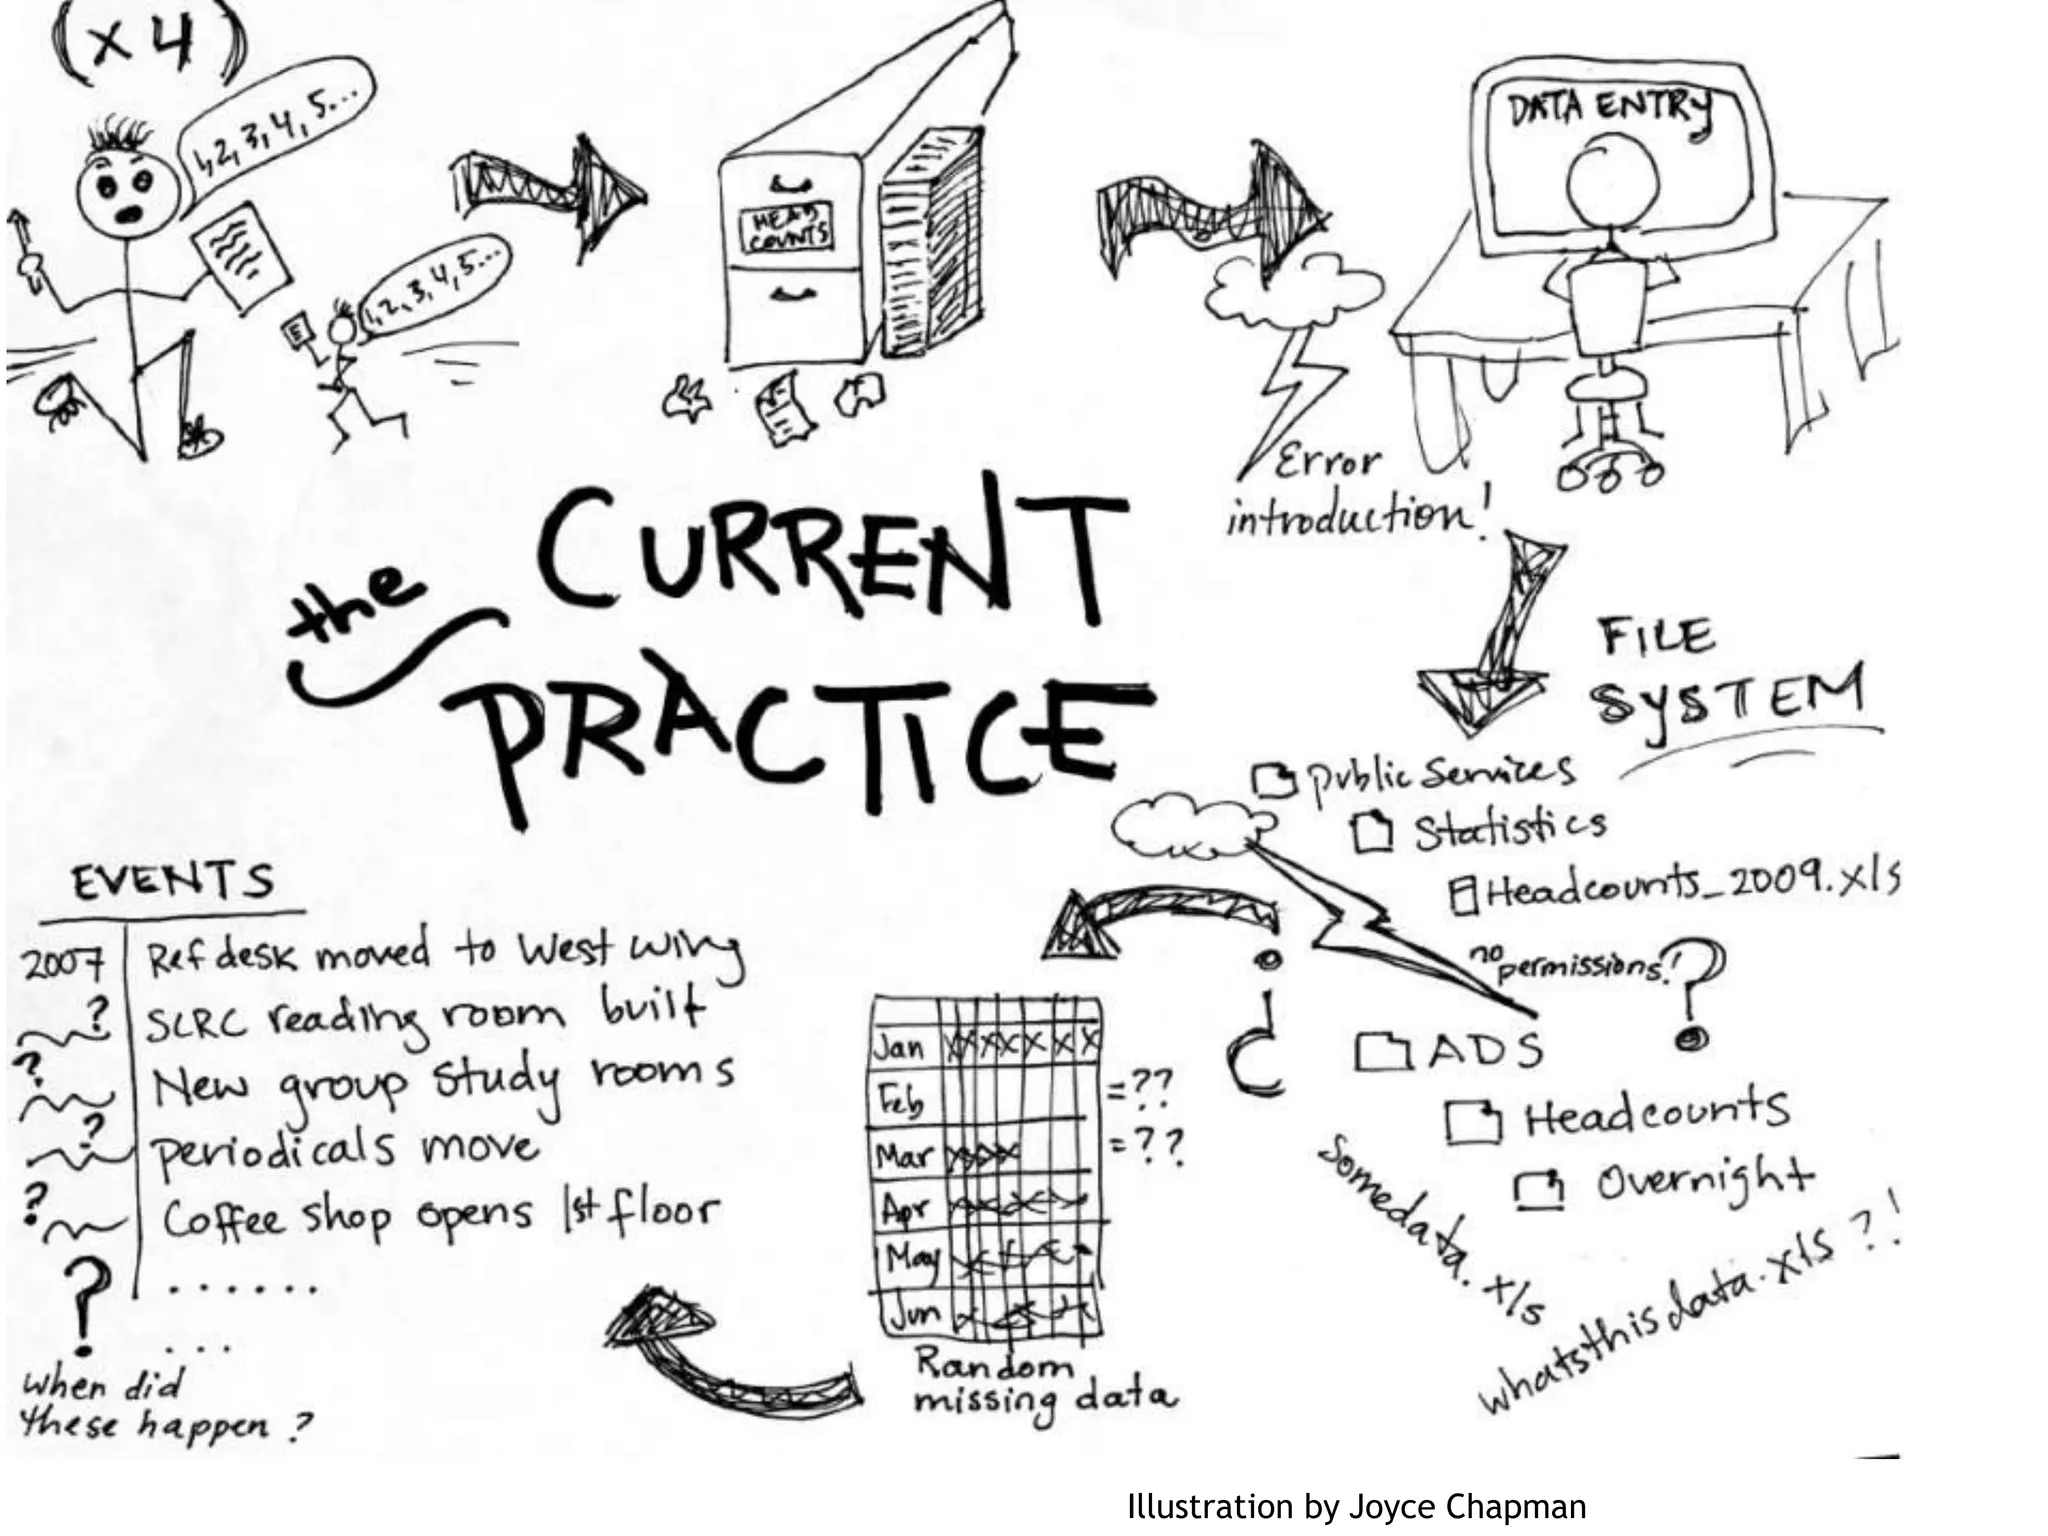 (x 4)
1, 2, 3, 4, 5...
1, 2, 3, 4, 5...
HEAD
COUNTS
DATA ENTRY
Error
introduction!
the
CURRENT
PRACTICE
FILE
SYSTEM
Public Services
Statistics
Headcounts_2009.xls
no
permissions!
?
ADS
Headcounts
Overnight
Somedata.xls
whatsthisdata.xls ?!
?
Jan
Feb
=??
Mar
=??
Apr
May
Jun
Random
missing data
EVENTS
2007 Ref desk moved to West wing
? SCRC reading room built
? New group study rooms
? periodicals move
? Coffee shop opens 1st floor
? ......
...
When did
these happen?
Illustration by Joyce Chapman